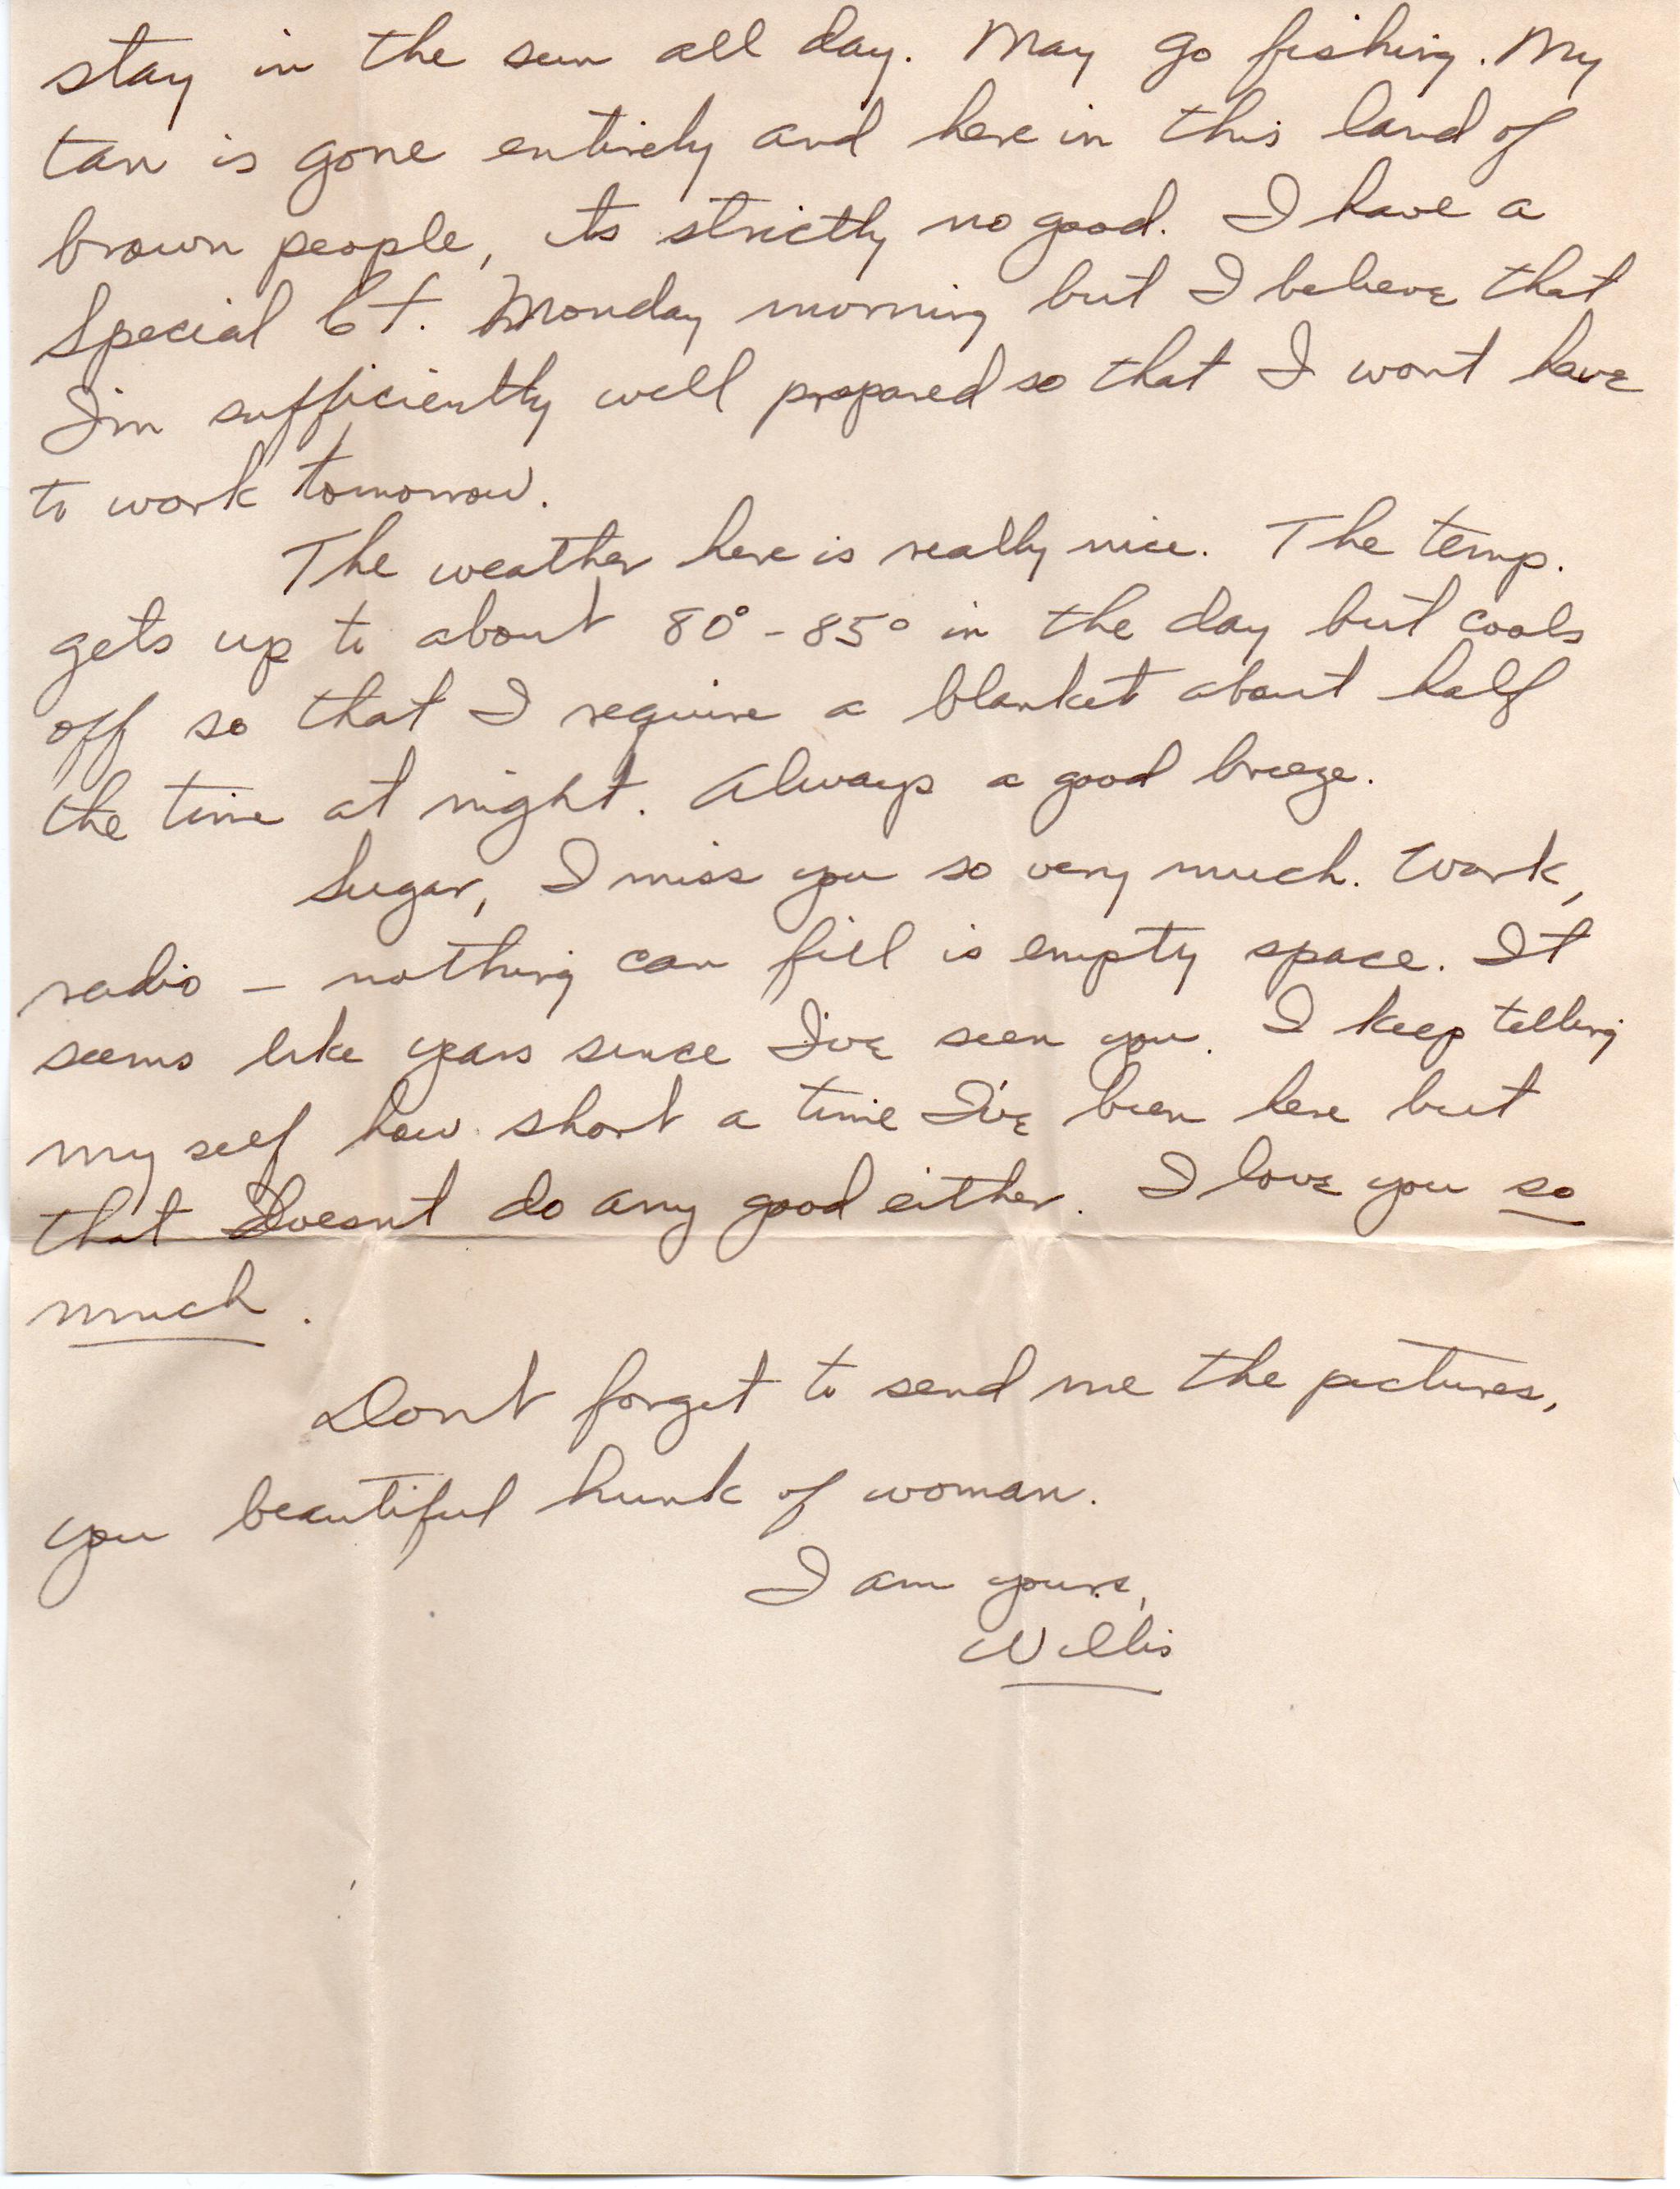 stay in the sun all day. May go fishing. My
tan is gone entirely and here in this land of
brown people, its strictly no good. I have a
Special Ct. Monday morning but I believe that
I'm sufficiently well prepared so that I wont have
to work tomorrow.
The weather here is really nice. The temp.
gets up to about 80° - 85° in the day but cools
off so that I require a blanket about half
the time at night. Always a good breeze.
Sugar, I miss you so very much. Work,
radio – nothing can fill is empty space. It
seems like years since I've seen you. I keep telling
my self how short a time I've been here but
that Doesnt do any good either. I love you so
much.
Dont forget to send me the pictures,
you beautiful hunk of woman.
I am yours,
Willis